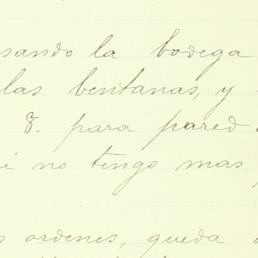 sando la bodega
las bentanas, y
8. para pared
i no tengo mas
s ordenes, queda